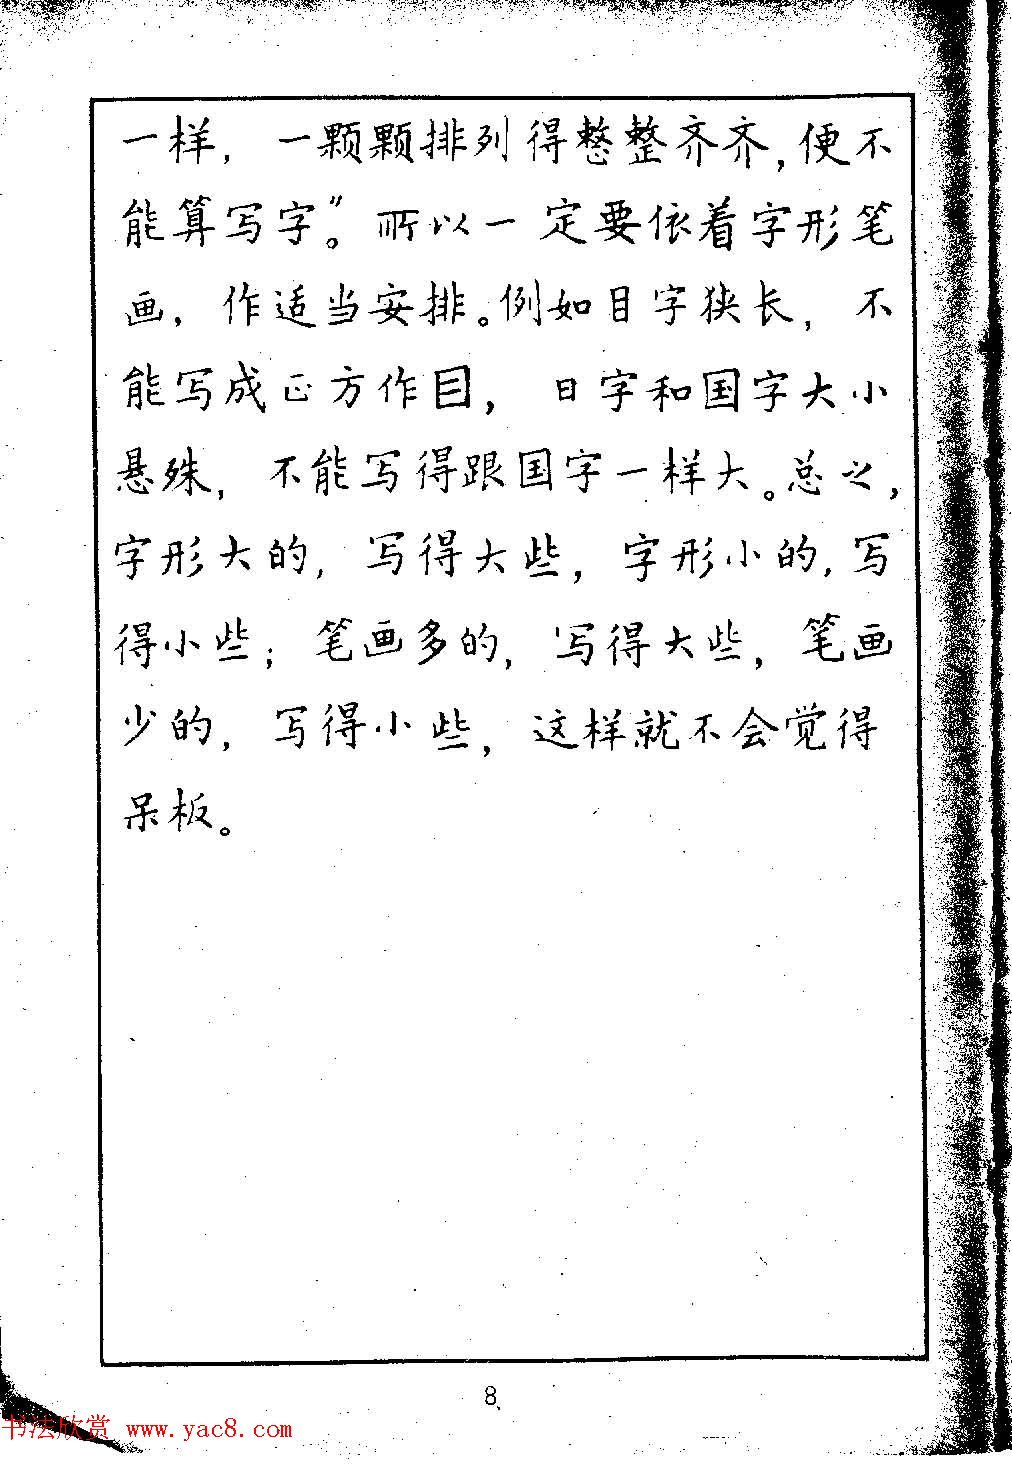 一样，一颗颗排列得整整齐齐，便不
能算写字”。所以一定要依着字形笔
画，作适当安排。例如目字狭长，不
能写成正方作目，日字和国字大小
悬殊，不能写得跟国字一样大。总之，
字形大的，写得大些，字形小的，写
得小些；笔画多的，写得大些，笔画
少的，写得小些，这样就不会觉得
呆板。
8
书法欣赏 www.yac8.com